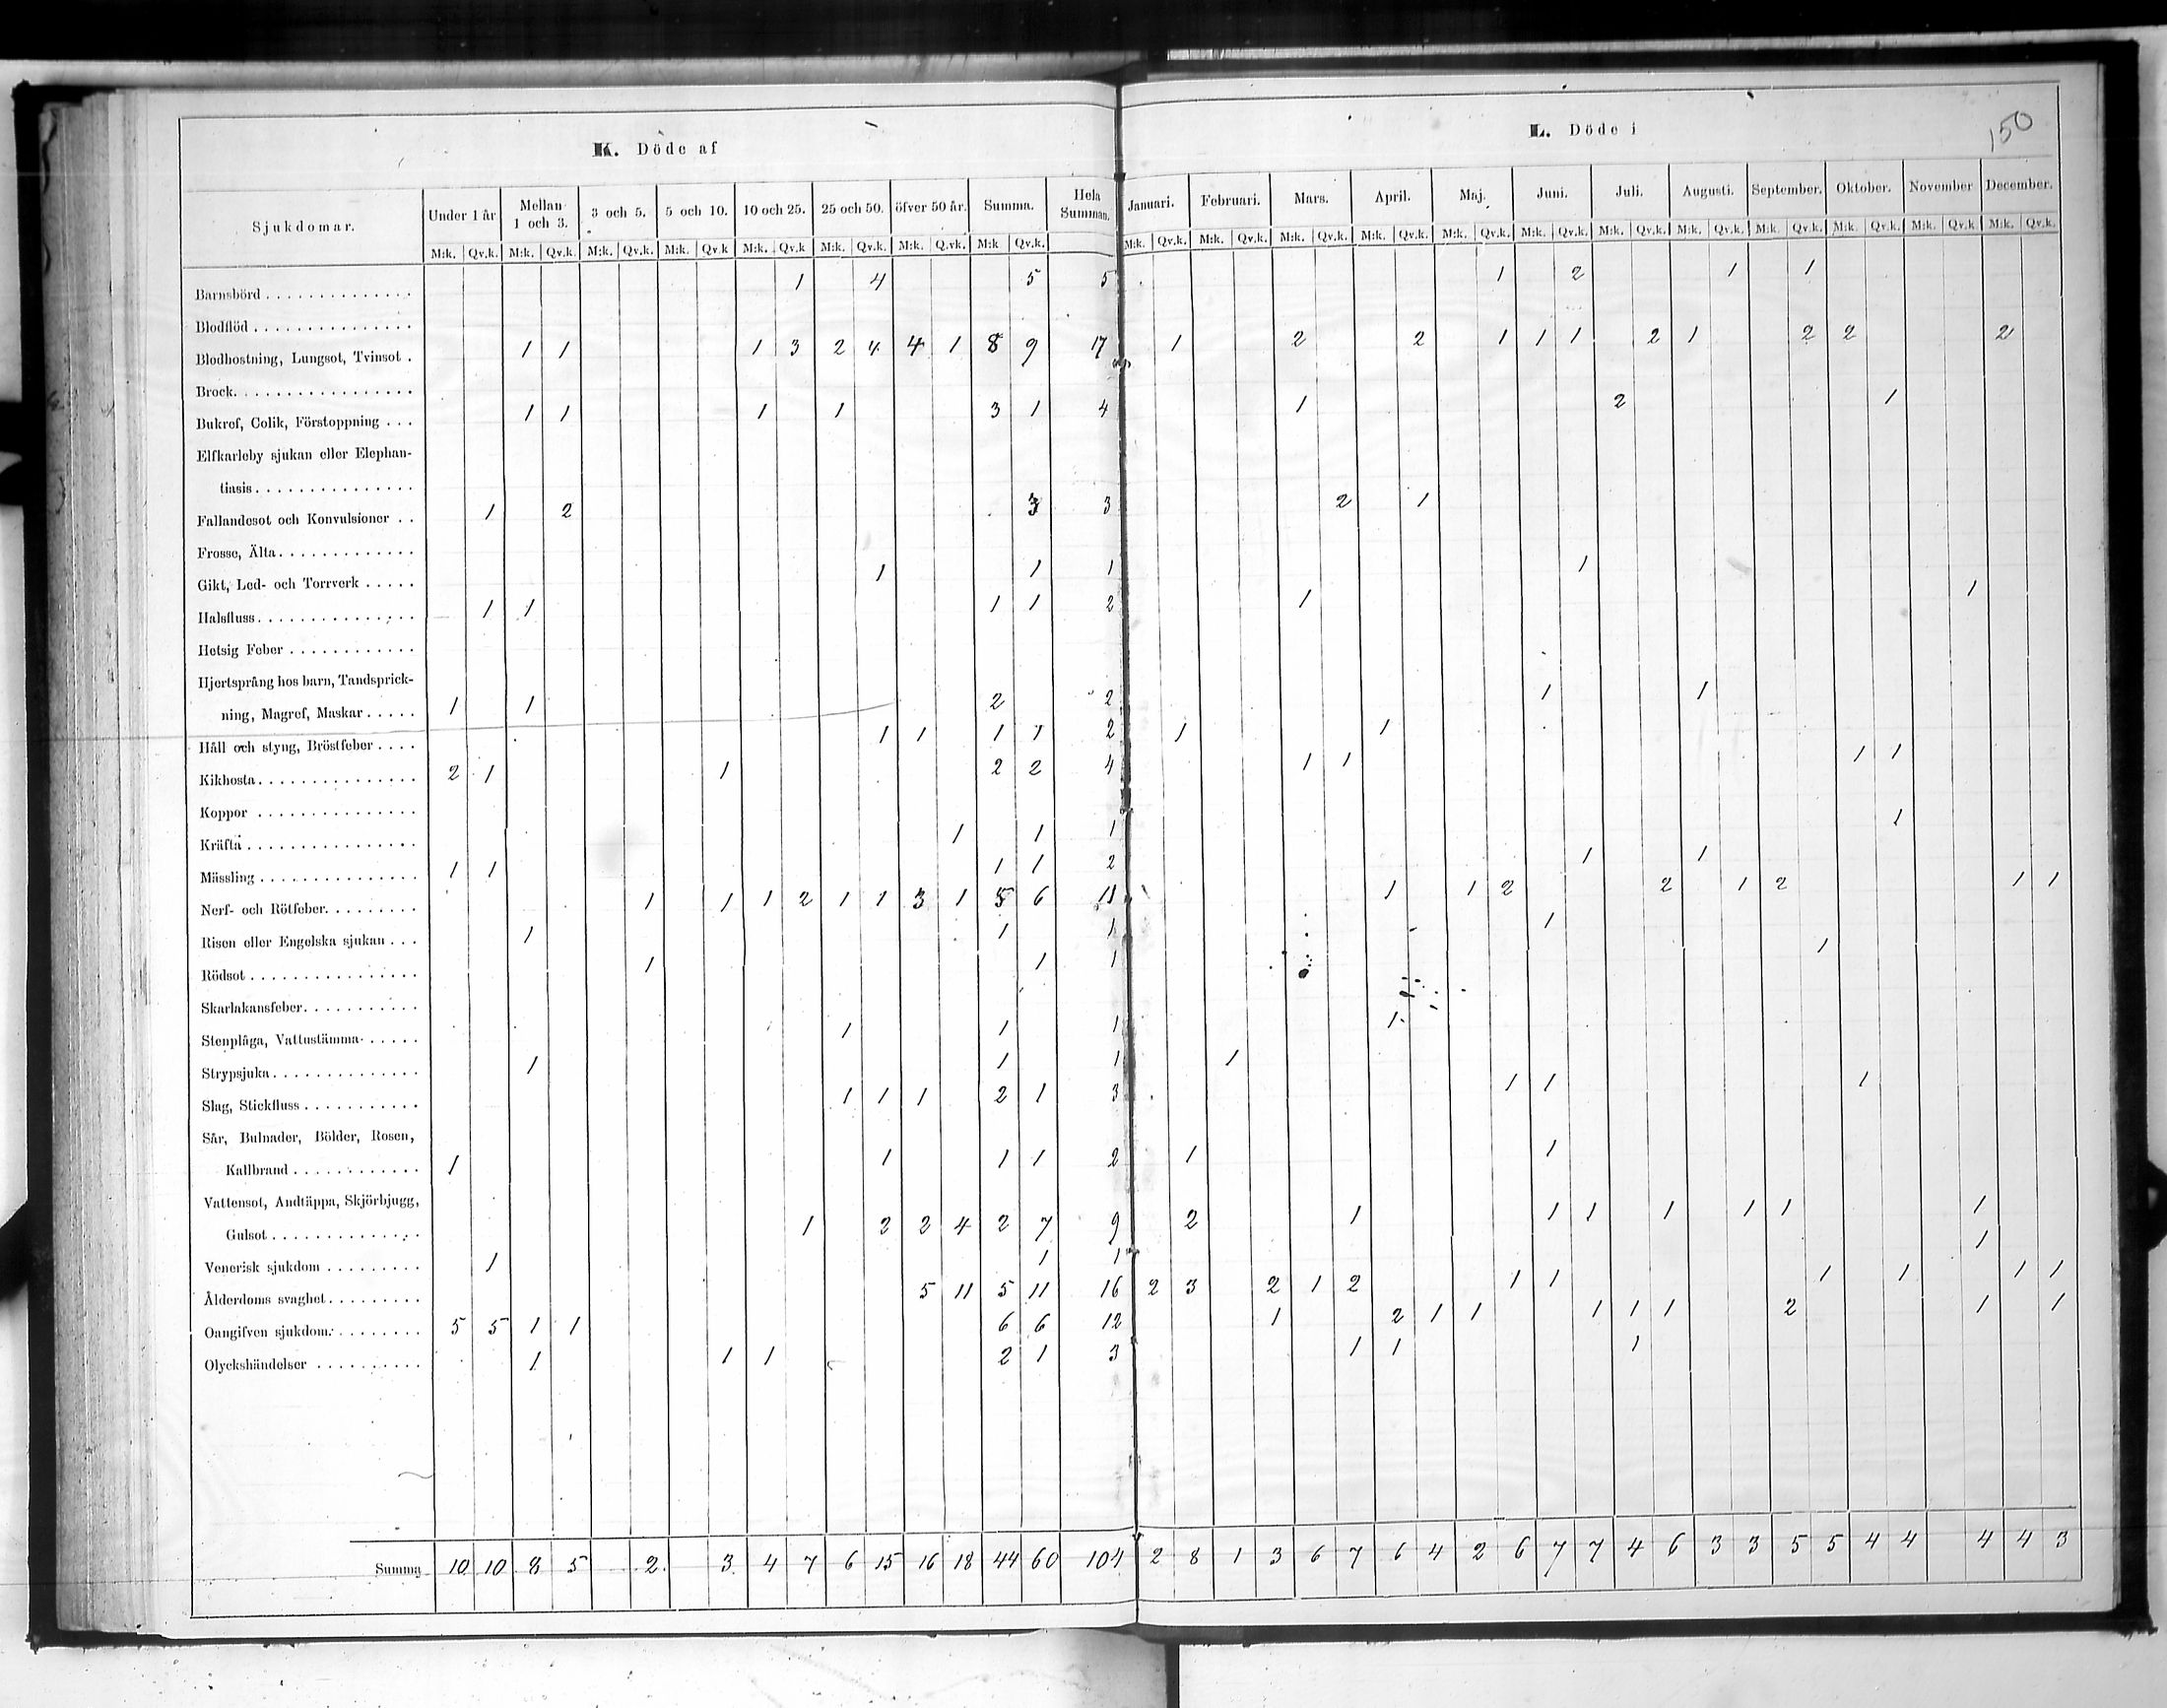 150
K. Döde af
L. Döde i
Sjukdomar. Under 1 år Mellan 1 och 3. 3 och 5. 5 och 10. 10 och 25. 25 och 50. öfver 50 år. Summa. Hela Summan. Januari. Februari. Mars. April. Maj. Juni. Juli. Augusti. September. Oktober. November December.
M:k. Qv.k. M:k. Qv.k. M:k. Qv.k. M:k. Qv.k M:k. Qv.k M:k. Qv.k. M:k. Q.vk. M:k Qv.k. M:k. Qv.k. M:k. Qv.k. M:k. Qv.k. M:k. Qv.k. M:k. Qv.k. M:k. Qv.k. M:k. Qv.k. M:k. Qv.k. M:k. Qv.k. M:k. Qv.k. M:k. Qv.k. M:k. Qv.k.
Barnsbörd 1 4 5 5 1 2 1 1
Blodflöd
Blodhostning, Lungsot, Tvinsot 1 1 1 3 2 4 4 1 8 9 17 1 2 2 1 1 1 2 1 2 2 2
Brock
Bukref, Colik, Förstoppning 1 1 1 1 3 1 4 1 2 1
Elfkarleby sjukan eller Elephan-
tiasis
Fallandesot och Konvulsioner 1 2 3 3 2 1
Frosse, Älta
Gikt, Led- och Torrverk 1 1 1 1
Halsfluss 1 1 1 1 2 1 1
Hetsig Feber
Hjertsprång hos barn, Tandsprick-
ning, Magref, Maskar 1 1 2 2 1 1
Håll och styng, Bröstfeber 1 1 1 1 2 1 1
Kikhosta 2 1 1 2 2 4 1 1 1 1
Koppor
Kräfta 1 1 1 1
Mässling 1 1 1 1 2 1 1
Nerf- och Rötfeber 1 1 1 2 1 1 3 1 5 6 11 1 1 2 2 1 2 1 1
Risen eller Engelska sjukan 1 1 1 1
Rödsot 1 1 1 1
Skarlakansfeber
Stenplåga, Vattustämma 1 1 1 1
Strypsjuka 1 1 1 1
Slag, Stickfluss 1 1 1 2 1 3 1 1 1
Sår, Bulnader, Bölder, Rosen,
Kallbrand 1 1 1 1 2 1 1
Vattensot, Andtäppa, Skjörbjugg,
Gulsot 1 2 2 4 2 7 9 2 1 1 1 1 1 1 1
Venerisk sjukdom 1 1 1 1
Ålderdoms svaghet 5 11 5 11 16 2 3 2 1 2 1 1 1 1 1 1
Oangifven sjukdom 5 5 1 1 6 6 12 1 2 1 1 1 1 1 2 1 1
Olyckshändelser 1 1 1 2 1 3 1 1 1
Summa 10 10 8 5 2 3 4 7 6 15 16 18 44 60 104 2 8 1 3 6 7 6 4 2 6 7 7 4 6 3 3 5 5 4 4 4 4 3